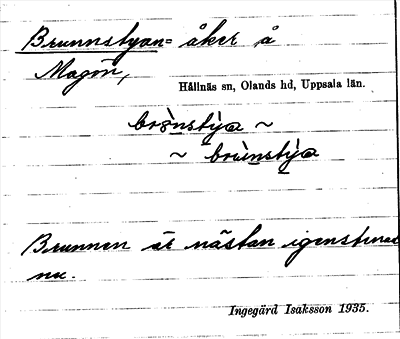 Brunnstyan= åker å
Magön,
Hållnäs sn, Olands hd, Uppsala län.
~
~
Brunnen är nästan igensturad
nu.
Ingegärd Isaksson 1935.